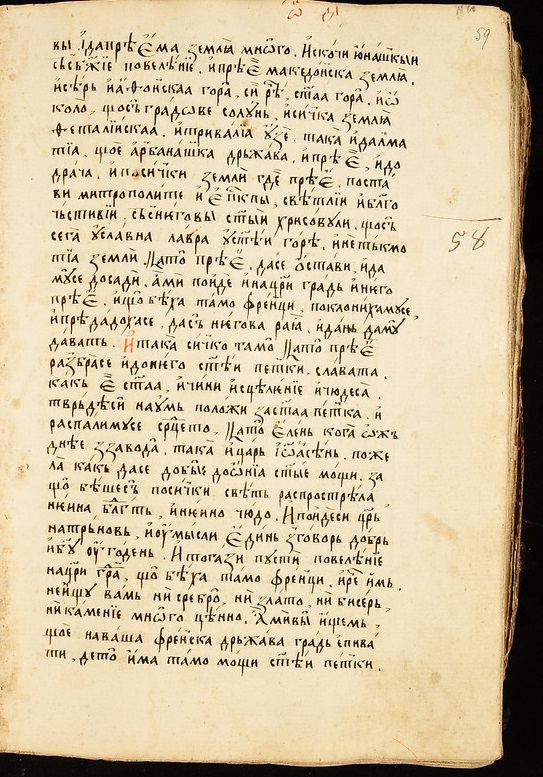 59
58
вы і да прѣе́ма землꙗ мнѡ́го. и҆скочи ю҆нашкыи
сѣс бж҃їе повелѣ́нїе. и҆ прѣе҆ македо́нска землꙗ.
и҆ сѣръ и҆ а҆ѳо́нскла гора̀. си́ рѣ̑ ст҃аа гора̀. и҆ ѡ҆
коло̀. що съ градѡве солꙋнь, и҆ сичка землꙗ
ѳеталїискаа. и҆ тривалїа ᲂу҆зе. така̀ и҆ далма
тїа. щое а҆рбана́шка дръжава, и҆ прѣе̑, и҆ до
драча, и҆ по си́чки земли где прѣе̑. поста
ви митрополи́те и҆ е҆пкпы, свѣтлїи и҆ бл҃го
чьстивїи, съ сне́говы ст҃ый хрисовꙋли. що съ
сега̀ ᲂу҆ славна лавра ᲂу҆ ст҃ѣи горѣ, и҆ не тькмо
тїа земли́ цато прѣе̑. да се ѡ҆стави, и҆ да
мꙋ се досади. а҆ми пойде и҆ на цр҃и градь и҆ не́го
прѣе̑. и҆ що бѣ́ха тамо фре́нци, поклонихамꙋсе,
и҆ прѣдадохасе, да съ не́гова раꙗ, и҆ дань да мꙋ
даватъ. И҆ така сичко тамо̀ цато прѣе̑
разбра се и҆ до не́го ст҃ѣи петки. славата.
какъ е҆̑ ст҃аа, и҆ чини и҆сцѣле́нїе и҆ чюдеса̀.
тврьдѣ си наꙋмь положи за ст҃аа петка. и҆
распалимꙋсе срц҃ето. цато е҆лень кога ѡ҆жъ
днѣе з заво́да. така̀ и҆ царь і҆ѡ҆а҆сѣнь. поже
ла какъ да се добы́е до ѡ҆нїа ст҃ые мощи. за
що бѣшесъ по си́чки свѣтъ распрострѣла
не́ина бл҃гть, и҆ не́ино чюдо. И҆ пойде си цр҃ь
на трьновь, и҆ ᲂу҆мысли е҆динь зговорь добрь
и҆ бг҃ꙋ ᲂу҆годень. И҆ тогази пꙋсти повелѣ́нїе
на цр҃и гра̑, що бѣ́ха тамо фре́нци. и҆ рѐ и҆мь.
не и҆щꙋ вамь ни сребро̀, ни злато, ни бисерь,
ни каменїе мно́го цѣнно. а҆ми вы и҆щемь,
щое на ваша фре́нска дръжава градь е҆пива
ти, дето и҆ма тамо мощи ст҃ѣи пе́тки.